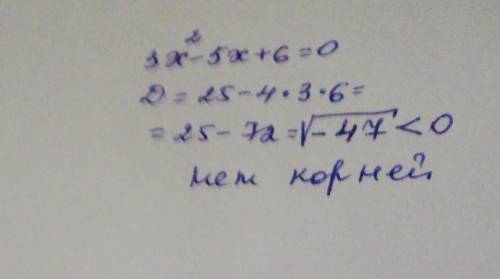 3x²-5x+6=0
D = 25-4·3·6=
= 25-72=√-47<0
нет корней